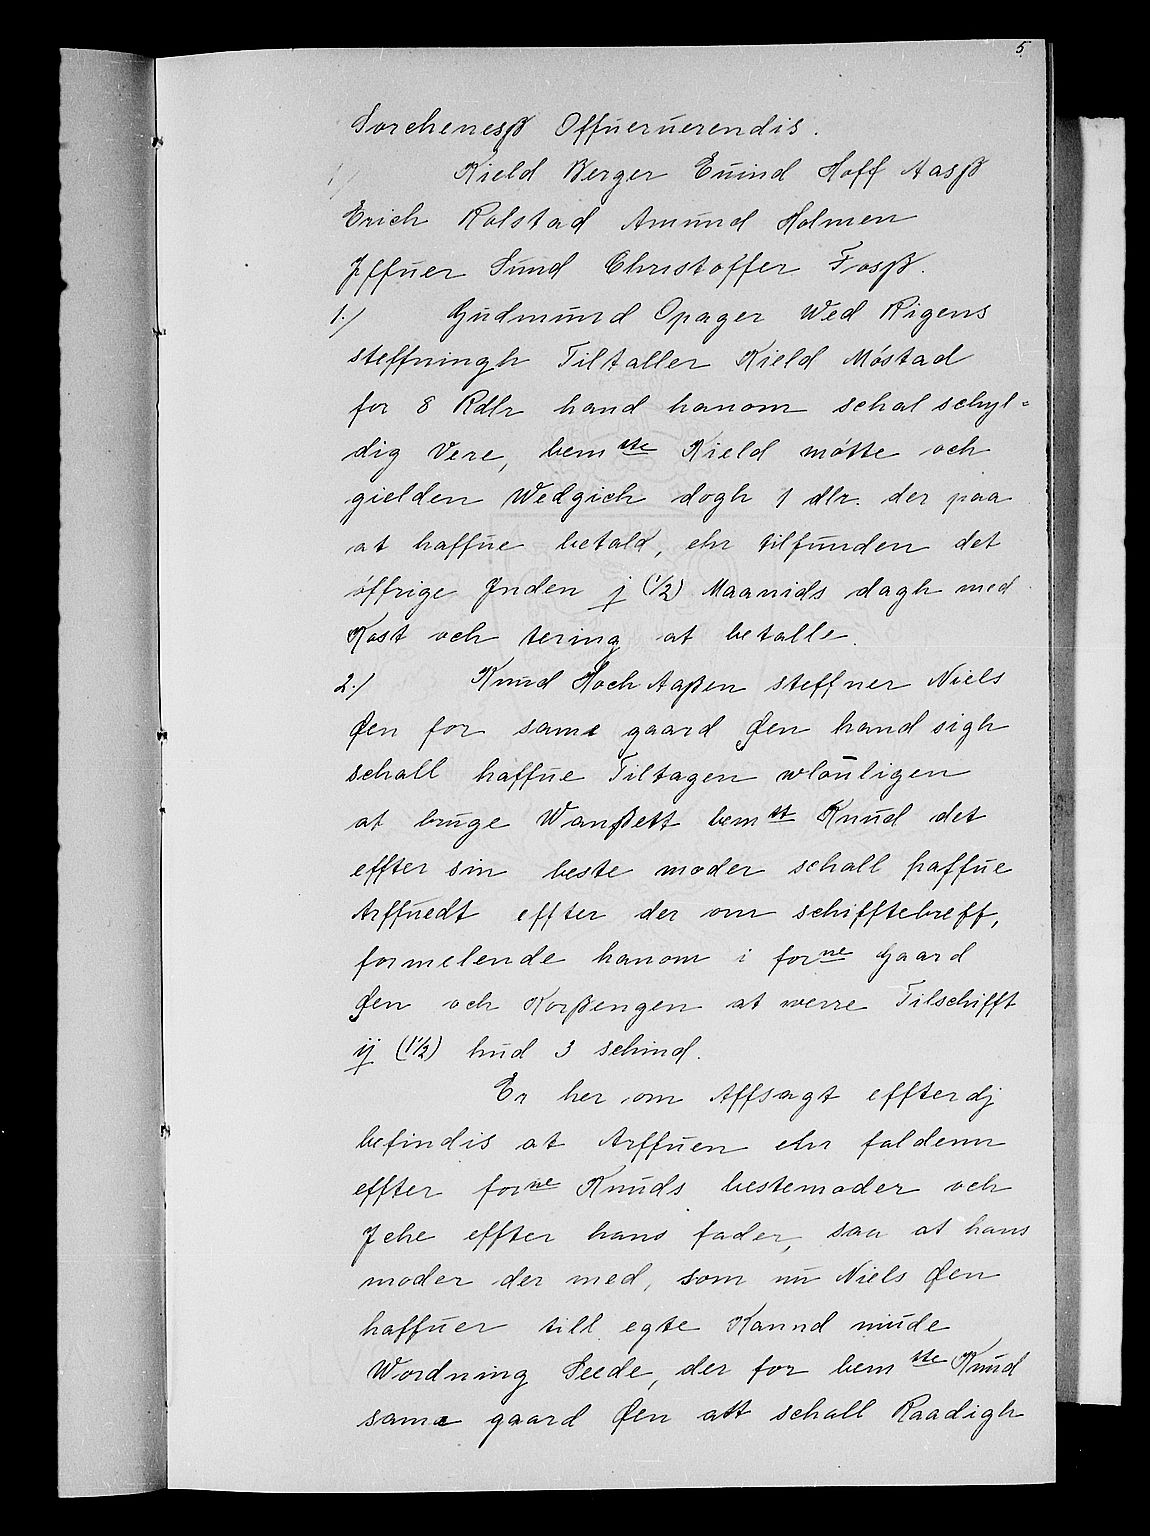 5
Sorchenesß Offueruerendis.
Kield Berger Euind Hoff Aasß
Erich Rolstad Amund Holmen
Jffuer Sund Christoffer Fosß.
1./ Gudmund Opager Wed Rigens
steffningh Tiltaller Kield Móstad
for 8 Rdlr hand hanom schal schyl=
dig Vere, bemste Kield mótte och
gielden Wedgich dogh 1 dlr. der paa
at haffue betald, ehr tilfunden det
óffrige Jnden j (1/2) Maanids dagh med
Kost och tering at betalle.
2./ Knud Hoch Aaßen steffner Niels
Øen for same gaard Øen hand sigh
schall haffue Tiltagen wlouligen
at bruge Wanßett bemst Knud det
effter sin beste moder schall haffue
Arffuedt effter der om schifftebreff,
formelende hanom i forne Gaard
Øen och Korßengen at werre Tilschifft
ij (1 1/2) hud 3 schind.
Er her om Affsagt effterdj
befindis at Arffuen ehr faldenn
effter forne Knuds bestemoder och
Jche effter hans fader, saa at hans
moder der med, som nu Niels Øen
haffuer till egte Kannd miude
Wordning Seede, der for bemste Knud
same gaard Øen att schall Raadigh